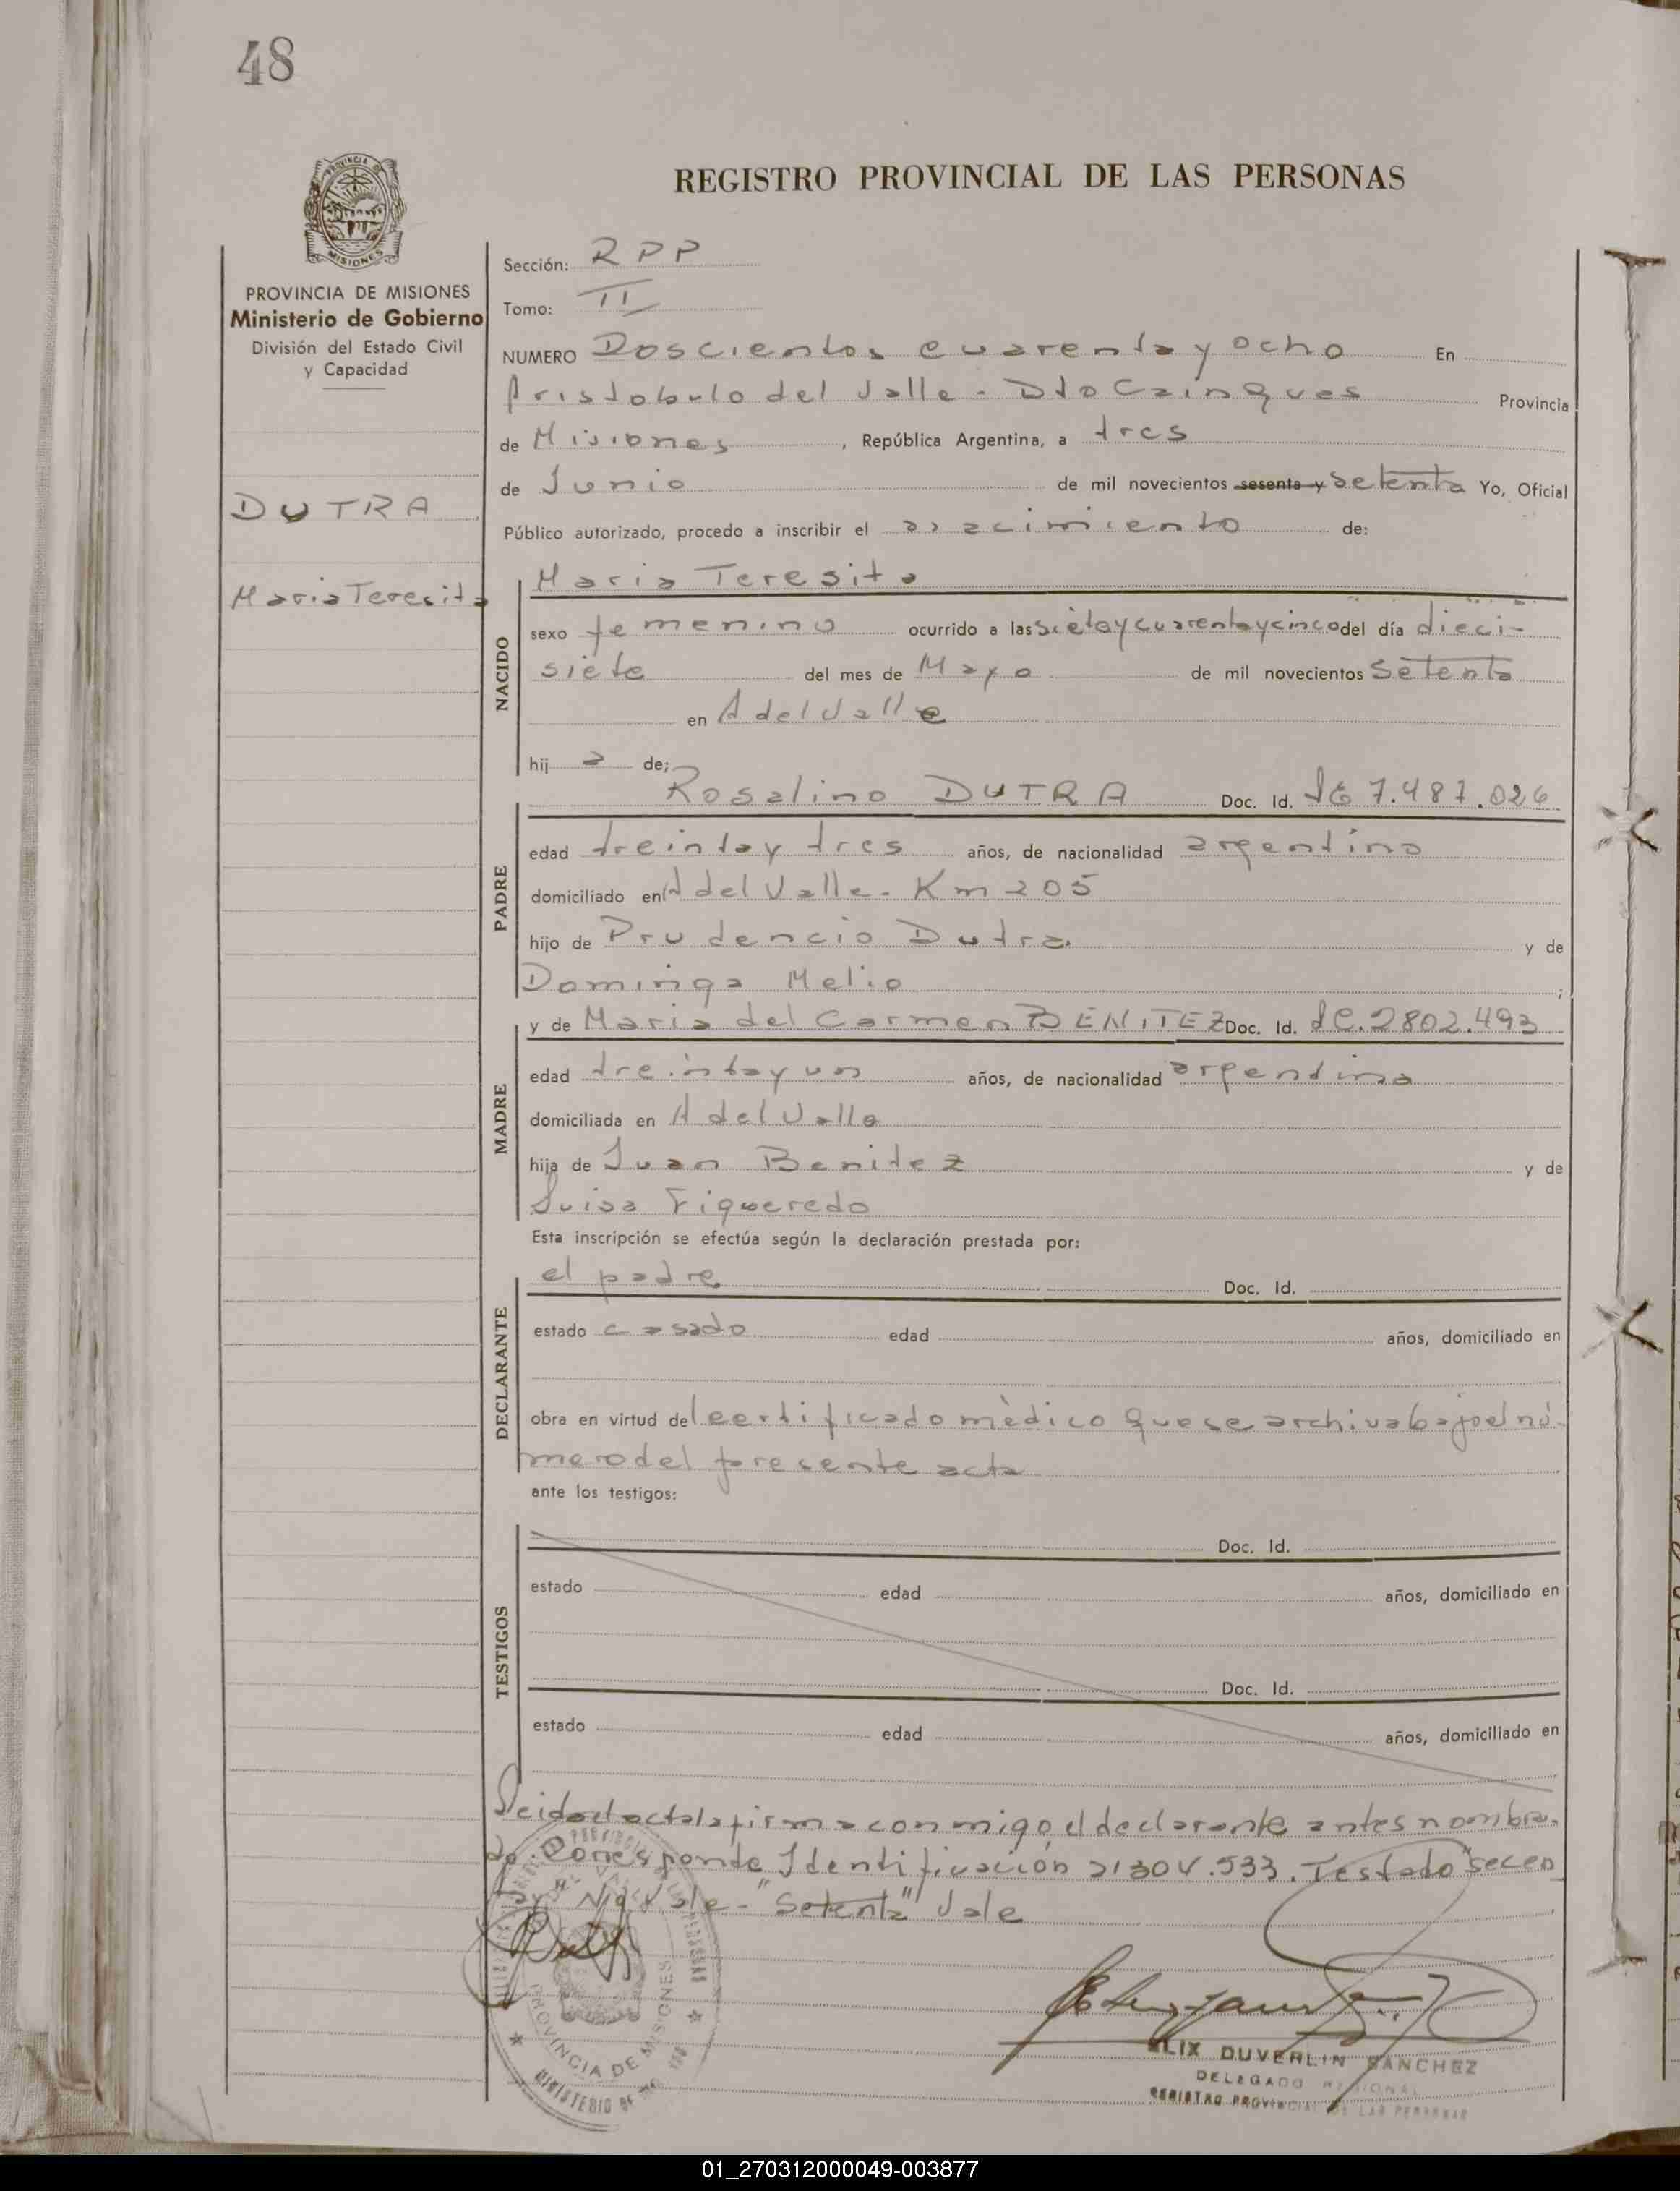 48
REGISTRO PROVINCIAL DE LAS PERSONAS
PROVINCIA DE MISIONES
Ministerio de Gobierno
División del Estado Civil
y Capacidad
DUTRA
Maria Teresita
Sección: RPP
Tomo: II
NUMERO Doscientos cuarenta y ocho En
Aristobulo del Valle - Dto Cainguas Provincia
de Misiones, República Argentina, a tres
de Junio de mil novecientos sesenta y setenta Yo, Oficial
Público autorizado, procedo a inscribir el nacimiento de:
NACIDO
Maria Teresita
sexo femenino ocurrido a las siete y cuarenta y cinco del día dieci-
siete del mes de Mayo de mil novecientos setenta
en A del Valle
hij a de;
PADRE
Rosalino DUTRA Doc. Id. 7.487.026
edad treinta y tres años, de nacionalidad argentino
domiciliado en A del Valle - Km 205
hijo de Prudencio Dutra y de
Dominga Melio ;
MADRE
y de Maria del Carmen BENITEZ Doc. Id. 2802.493
edad treinta y un años, de nacionalidad argentina
domiciliada en A del Valle
hija de Juan Benitez y de
Luisa Figueredo
Esta inscripción se efectúa según la declaración prestada por:
DECLARANTE
el padre Doc. Id.
estado casado edad años, domiciliado en
obra en virtud del certificado mèdico que se archiva bajo el nú-
mero del presente acta
ante los testigos:
TESTIGOS
Doc. Id.
estado edad años, domiciliado en
Doc. Id.
estado edad años, domiciliado en
Leida el acta la firma conmigo el declarante antes nombra-
do. Corresponde Identificación 21304.533. Testado
No Vale - "Setenta" Vale
PROVINCIA DE MISIONES
MINISTERIO DE
DUVERLIN SANCHEZ
DELEGADO REGIONAL
REGISTRO PROVINCIAL DE LAS PERSONAS
01_270312000049-003877